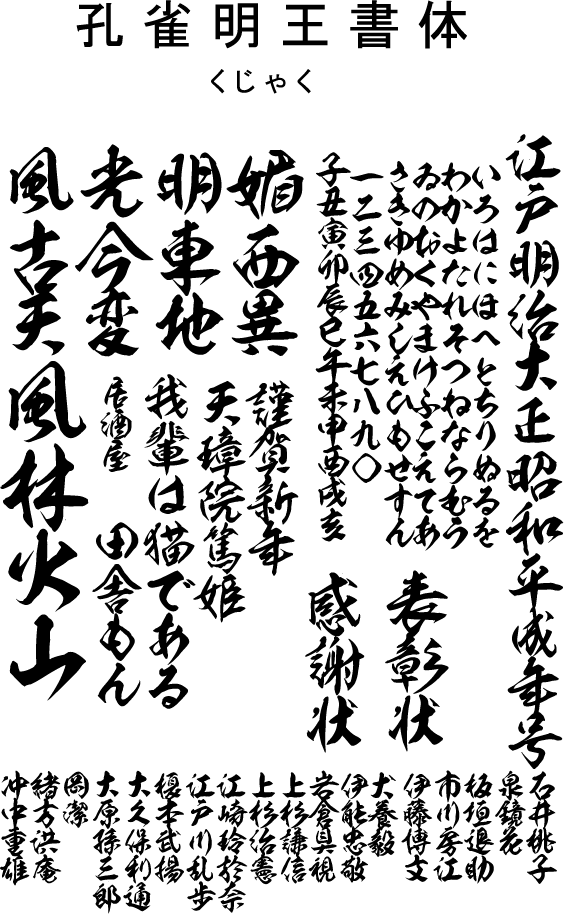 孔雀明王書体
くじゃく
江戸明治大正昭和平成年号
いろはにほへとちりぬるを
わかよたれそつねならむう
ゐのおくやまけふこえてあ
さきゆめみしえひもせすん
一二三四五六七八九〇
子丑寅卯辰巳午未申酉戌亥
表彰状
感謝状
媚西異
明東地
光今変
風古天
謹賀新年
天璋院篤姫
我輩は猫である
居酒屋
田舎もん
風林火山
石井桃子
泉鏡花
板垣退助
市川房江
伊藤博文
犬養毅
伊能忠敬
岩倉具視
上杉謙信
上杉治憲
江崎玲於奈
江戸川乱歩
榎本武揚
大久保利通
大原孫三郎
岡潔
緒方洪庵
沖中重雄